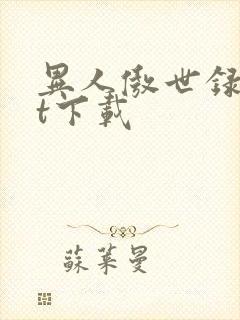 異人傲世録
t下載
蘇萊曼